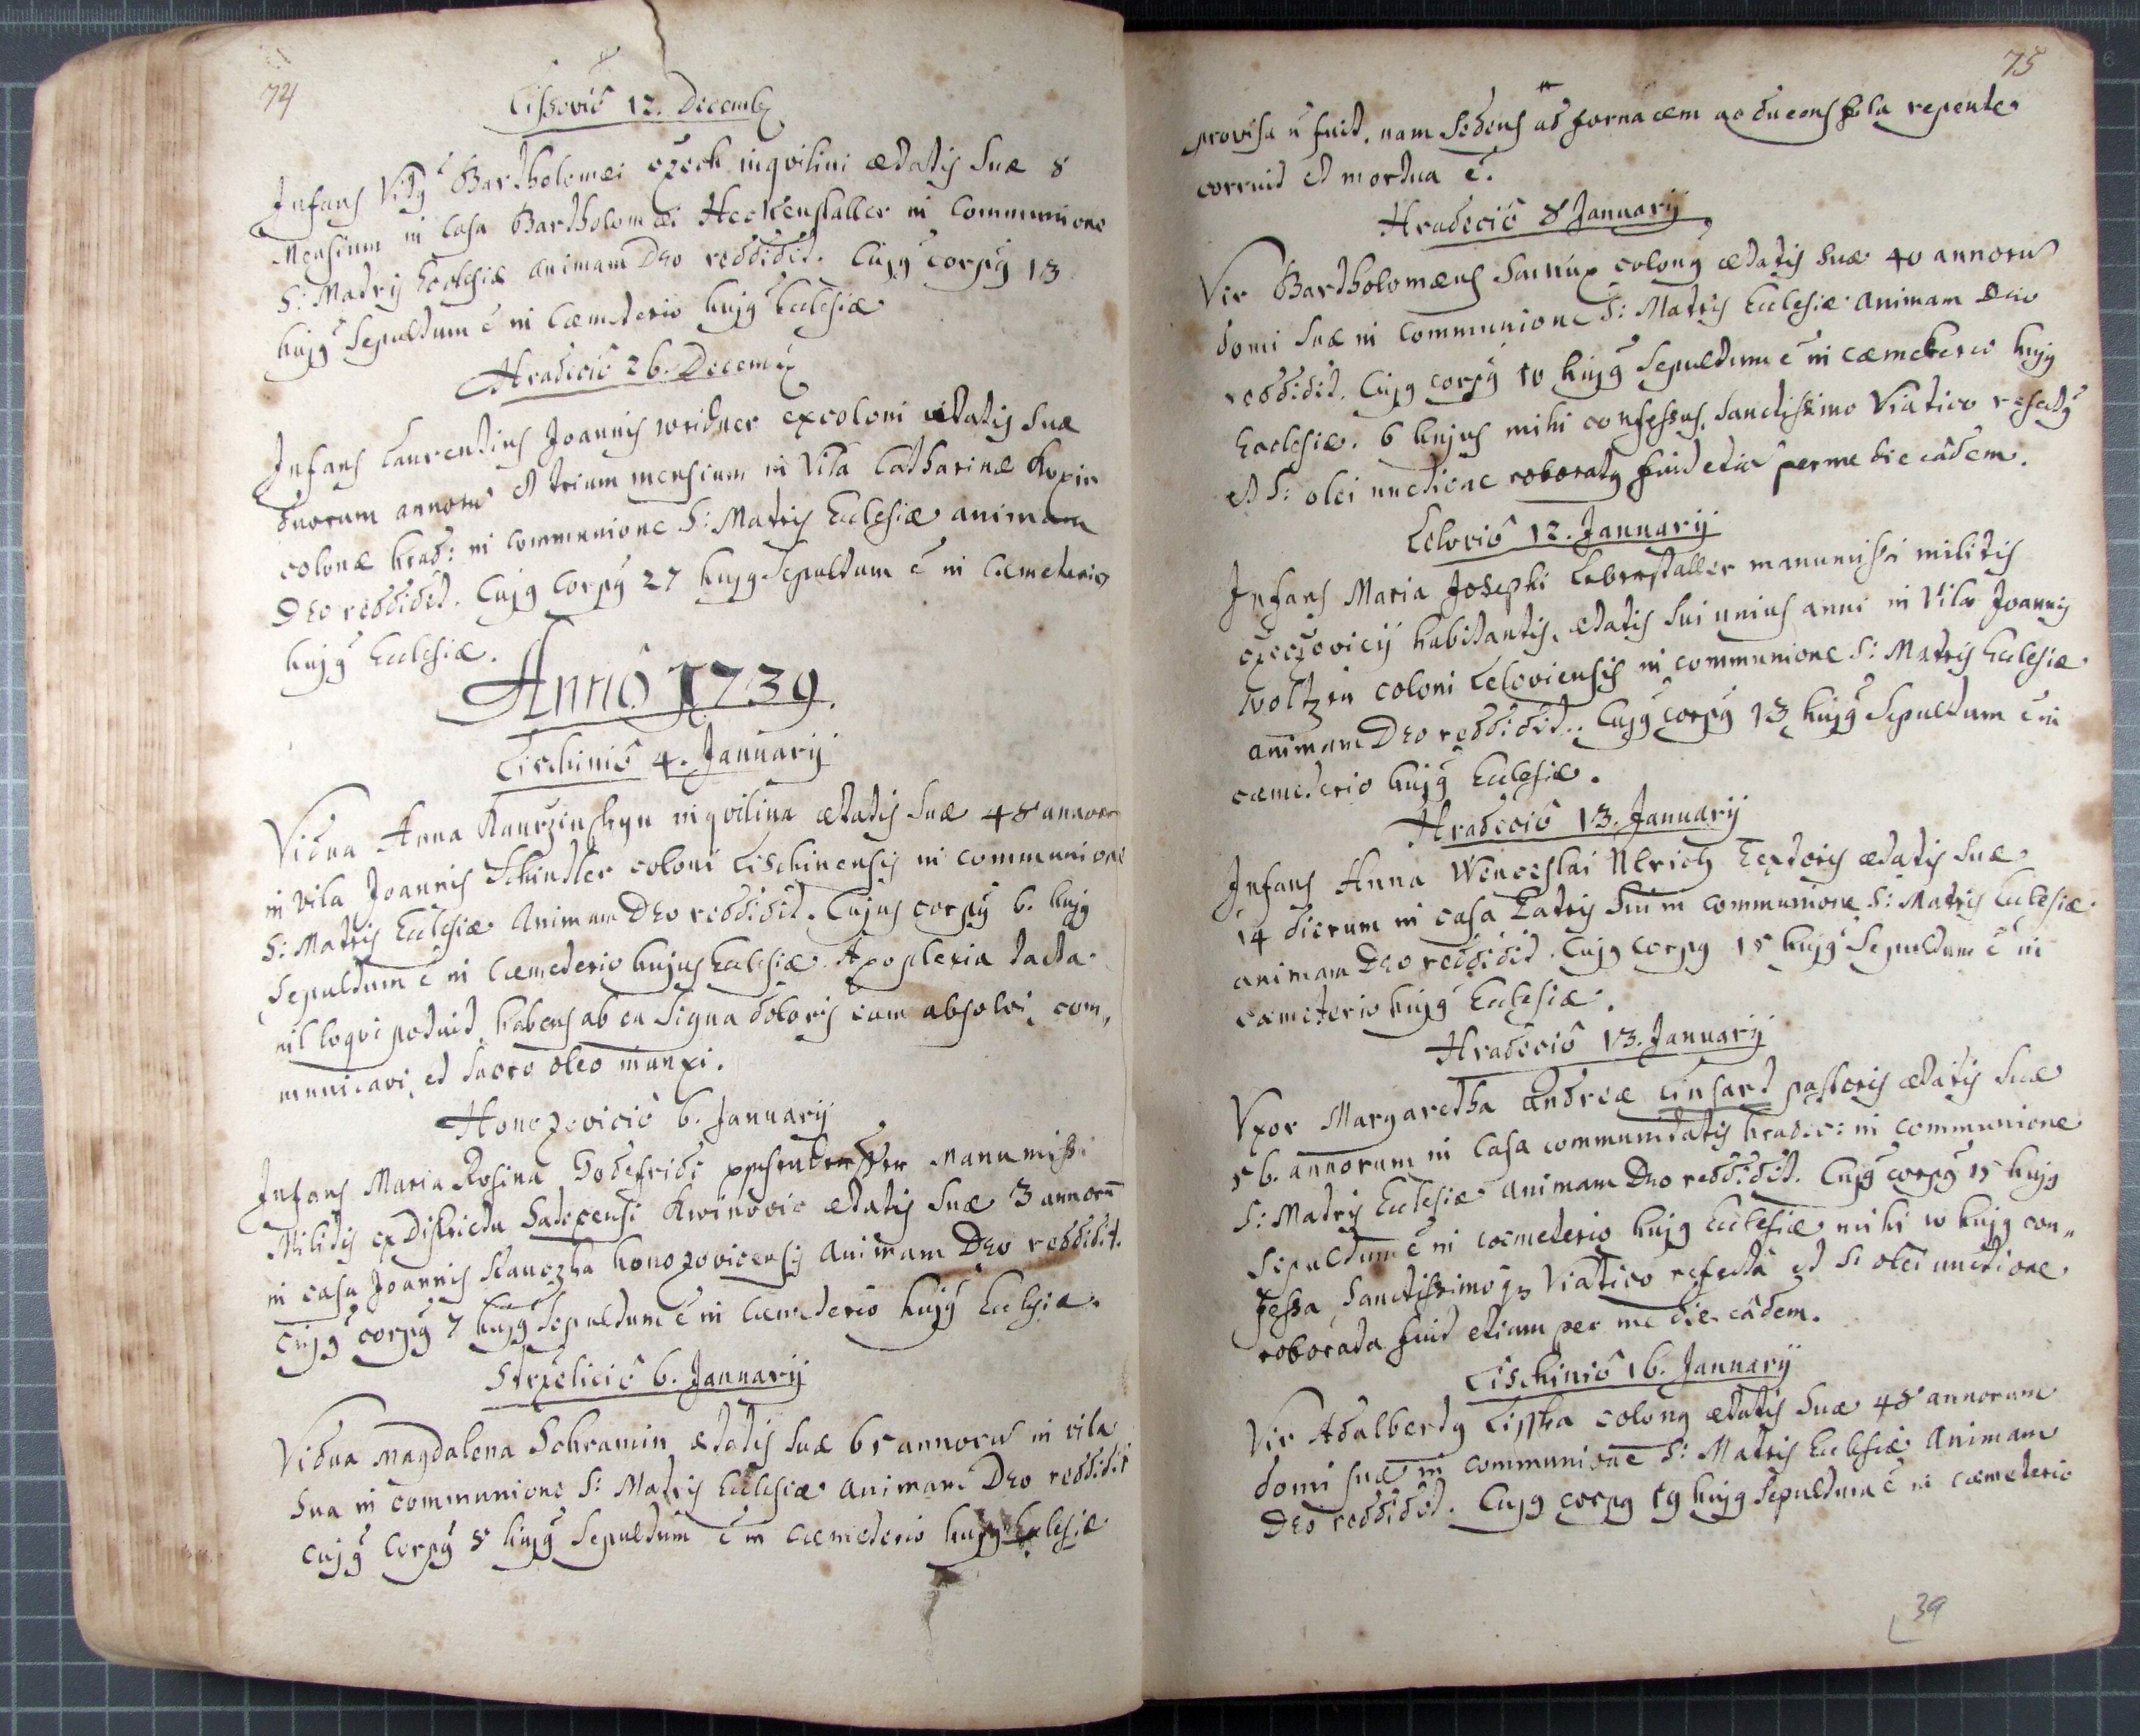 74
Lissović 12. Decemb
Infans Vitg Bartholomæi czech inqvilini ætatis suæ 8
Mensium in Casa Bartholomæi Heckenstaller in Communione
S: Matris Ecclesiæ animam Deo reddidit. Cujg corpg 13
hujg Sepultum ē in Cæmeterio hujg Ecclesiæ
Hradecić 26. Decem
Infans Laurentius Joannis weidner excoloni ætatis suæ
duorum annorū et trium mensium in Vila Catharinæ
colonæ hrad: in communione S: Matris Ecclesiæ animam
Deo reddidit. Cujg Corpg 27 hujg Sepultum ē in Cæmeterio
hujg Ecclesiæ.
Anno 1739.
Lischinić 4. Januarij
Vidua Anna inqvilina ætatis suæ 48 annorum
in vila Joannis Schindler coloni Lischinensis in communione
S: Matris Ecclesiæ Animam Deo reddidit. Cujus corpg 6. hujg
Sepultum ē in Cæmeterio hujus Ecclesiæ. Apoplexia tacta
nil loqvi potuit, habens ab ea Signa doloris eam absolvi, com„
municavi, et Sacro oleo inunxi.
Honezovicić 6. Januarij
Infans Maria Rosina Godefridi Manumissi
Militis ex Districtu Satecensi ætatis suæ 3 annorū
in casa Joannis honezovicensis animam Deo reddidit.
Cujg corpg 7 hujg Sepultum ē in Cæmeterio hujg Ecclesiæ.
Strzelicić 6. Januarij
Vidua Magdalena Schramin ætatis suæ 65 annorū in vila
Sua in communione S: Matris Ecclesiæ animam Deo reddidit
Cujg Corpg 8 hujg Sepultum ē in Cæmeterio hujg Ecclesiæ
75
provisa n̄ fuit, nam Sedens ad fornacem ac ducens fila repente
corruit et mortua ē.
Hradecić 8 Januarij
Vir Bartholomæus colong ætatis suæ 40 annorū
domi suæ in Communione S: Matris Ecclesiæ Animam Deo
reddidit. Cujg corpg 10 hujg Sepultum ē in cæmeterio hujg
Ecclesiæ. 6 hujus mihi confessus, Sanctissimo Viatico refectg
et S: olei unctione roboratg fuit etiā per me die eâdem.
Lelović 12. Januarij
Infans Maria Josephi Leberstaller manumissi militis
habitantis, ætatis sui unius anni in Vila Joannis
woltzin coloni Leloviensis in communione S: Matris Ecclesiæ
animam Deo reddidit. Cujg corpg 13 hujg Sepultum ē in
cæmeterio hujg Ecclesiæ.
Hradecić 13. Januarij
Infans Anna Wenceslai Ulrich Textoris ætatis suæ
14 dierum in casa Patris sui in communione S: Matris Ecclesiæ
animam Deo reddidit. Cujg corpg 15 hujg Sepultum ē in
cæmeterio hujg Ecclesiæ.
Hradecić 13. Januarij
Vxor Margaretha Andreæ Linhart pastoris ætatis suæ
56. annorum in Casa communitatis hradec: in communione
S: Matris Ecclesiæ animam Deo reddidit. Cujg corpg 15 hujg
Sepultum ē in cœmeterio hujg Ecclesiæ mihi 10 hujg con„
fessa Sanctissimoqz Viatico refecta et S: olei unctione
roborata fuit etiam per me die eâdem.
Lischinić 16. Januarij
Vir Adalbertg colong ætatis suæ 48 annorum
domi suæ in communione S: Matris Ecclesiæ Animam
Deo reddidit. Cujg corpg 19 hujg Sepultum ē in cæmeterio
39